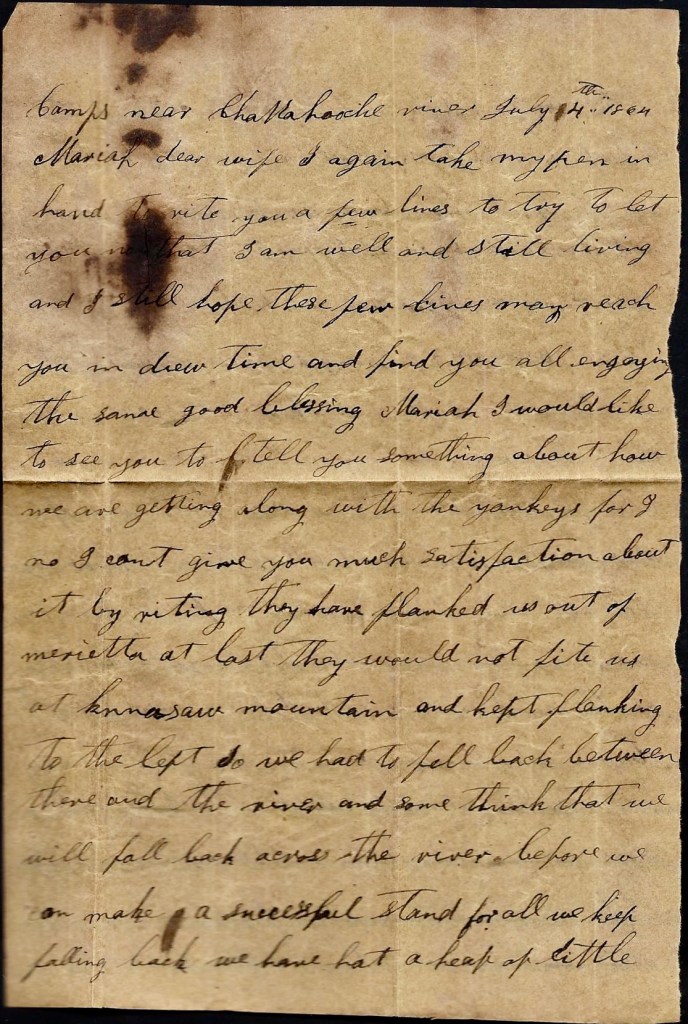 Camps near Chattahooche river July 4th 1864
Mariah dear wife I again take my pen in
hand to rite you a few lines to try to let
you no that I am well and still living
and I still hope these few lines may reach
you in diew time and find you all engoying
the same good blessing Mariah I would like
to see you to tell you something about how
we are getting along with the yankeys for I
no I cant give you much satisfaction about
it by riting they have flanked us out of
merietta at last they would not fite us
at knnasaw mountain and kept flanking
to the left So we had to fall back between
there and the river and some think that we
will fall back across the river before we
can make a successful stand for all we keep
falling back we have hat a heap of little